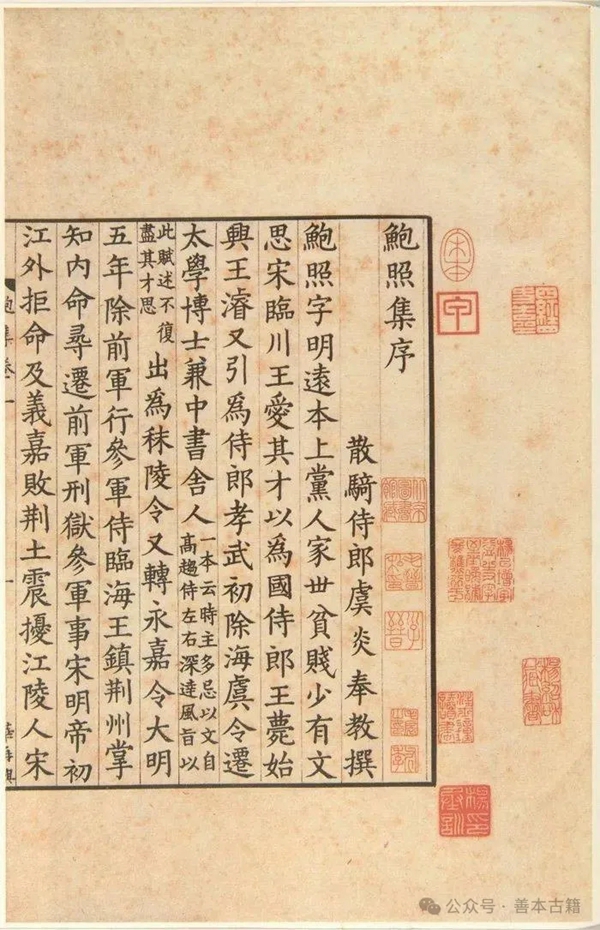 鮑照集序
散騎侍郎虞炎奉教撰
鮑照字明遠本上黨人家世貧賤少有文
思宋臨川王愛其才以爲國侍郎王薨始
興王濬又引爲侍郎孝武初除海虞令遷
太學博士兼中書舍人一本云時主多忌以文自
高趨侍左右深達風旨以
此賦述不復
盡其才思
出爲秣陵令又轉永嘉令大明
五年除前軍行參軍侍臨海王鎮荆州掌
知内命尋遷前軍刑獄參軍事宋明帝初
江外拒命及義嘉敗荆土震擾江陵人宋
公众号·善本古籍